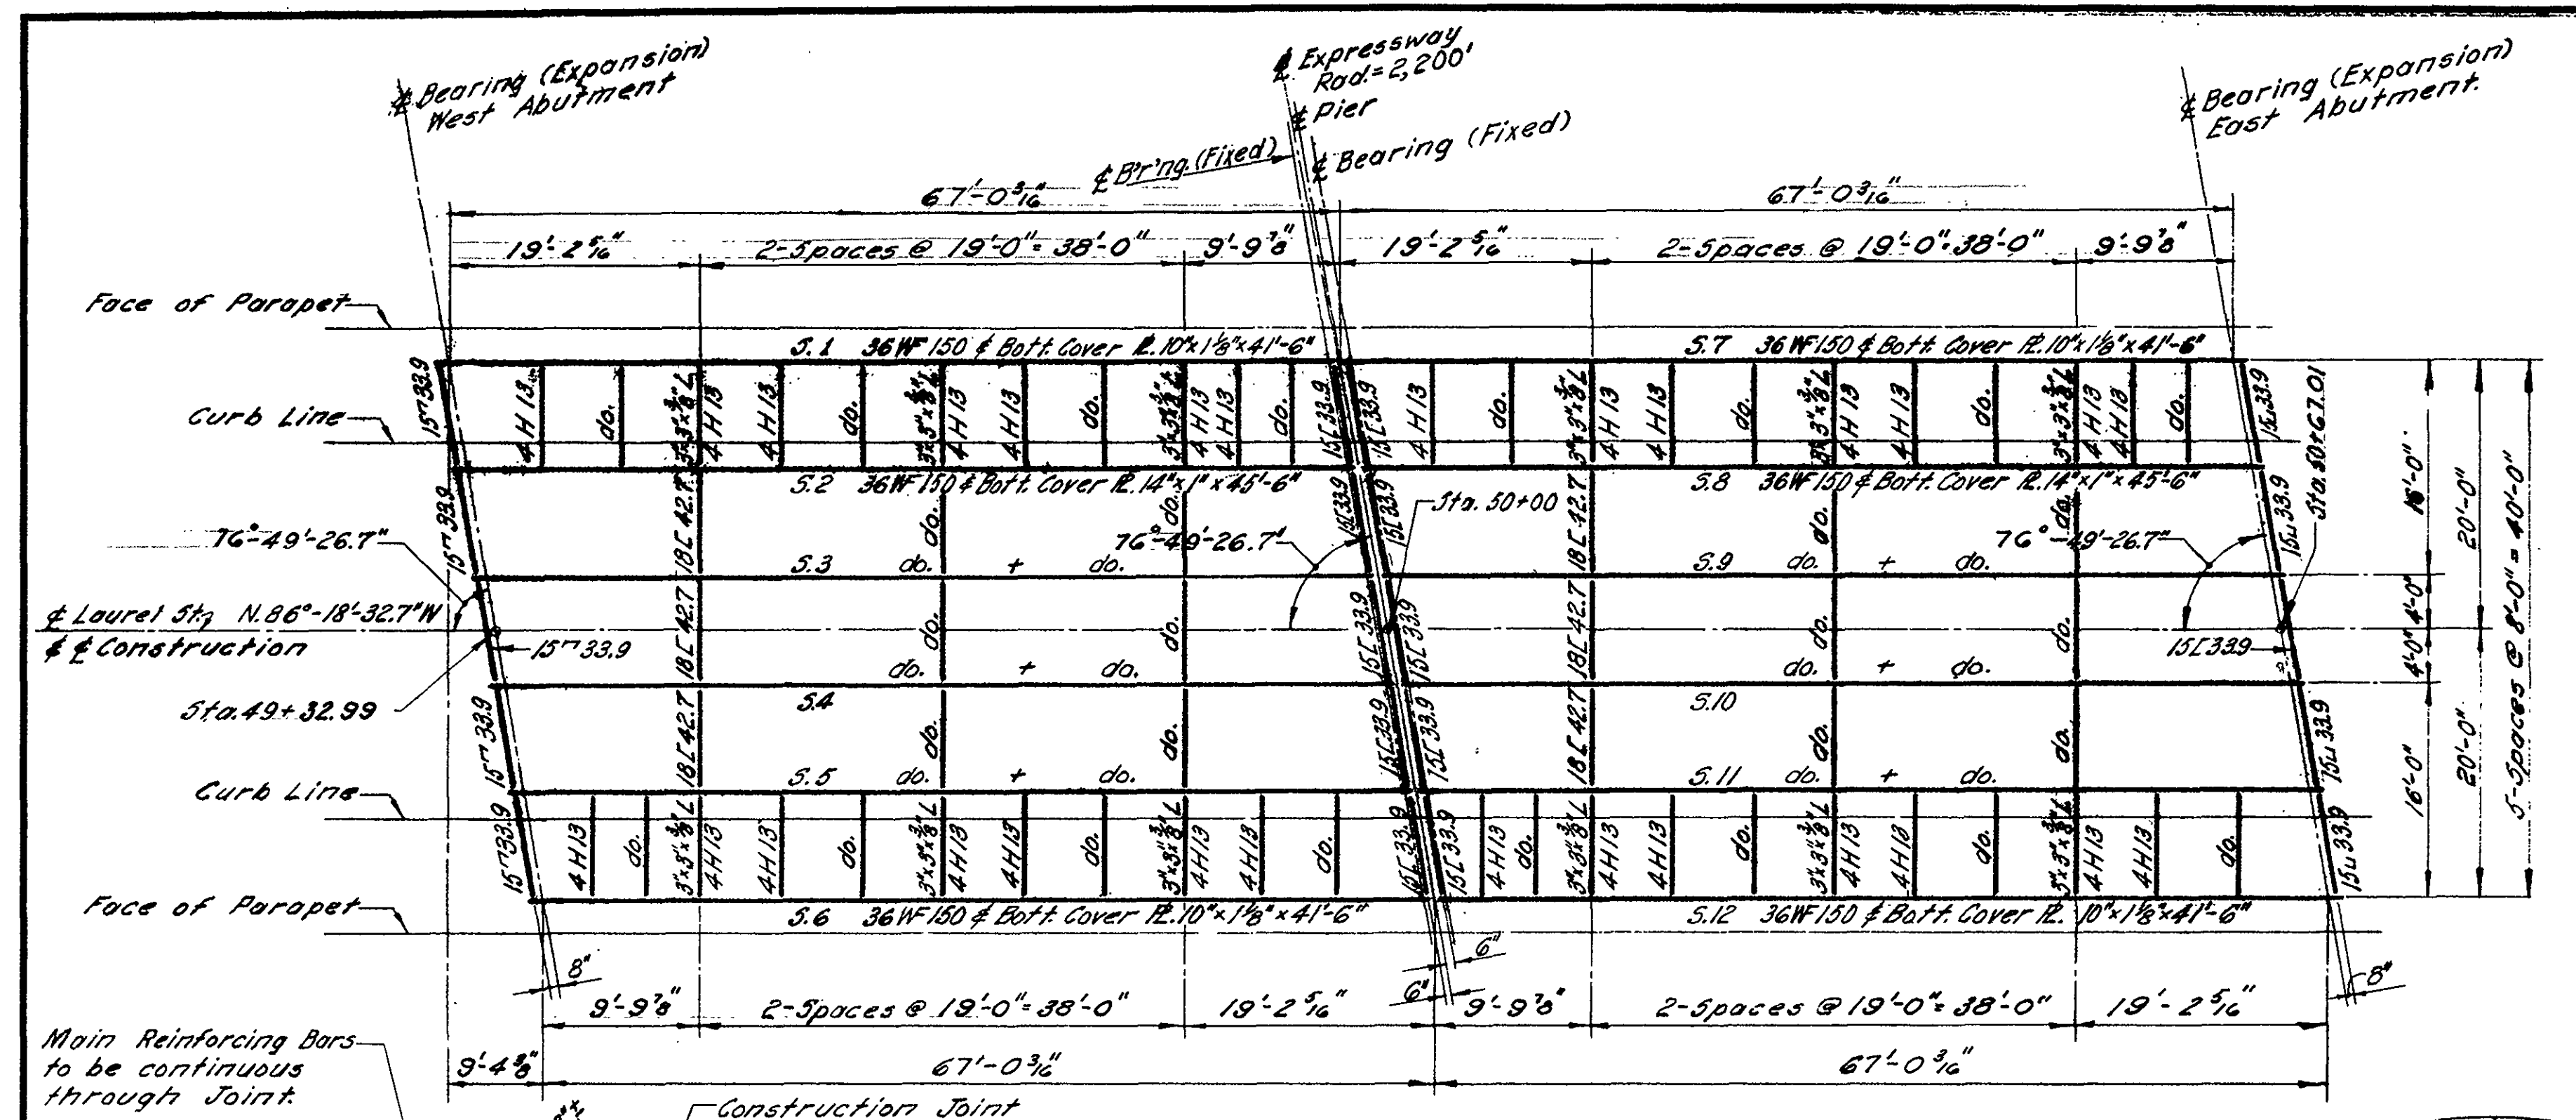 ℄ Bearing (Expansion)
West Abutment
℄ Expressway
Rad.= 2,200'
℄ Pier
℄ Br'ng. (Fixed)
℄ Bearing (Fixed)
℄ Bearing (Expansion)
East Abutment.
67'-0 3/16"
67'-0 3/16"
19'-2 5/16"
2-Spaces @ 19'-0" = 38'-0"
9'-9 7/8"
19'-2 5/16"
2-Spaces @ 19'-0" = 38'-0"
9'-9 7/8"
Face of Parapet
S.1 36WF150 & Bott. Cover PL. 10"x1 1/8"x41'-6"
S.7 36WF150 & Bott. Cover PL. 10"x1 1/8"x41'-6"
Curb Line
15⊏33.9
4H13
do.
3"x3"x3/8"L
4H13
4H13
do.
3"x3"x3/8"L
4H13
4H13
do.
3"x3"x3/8"L
4H13
4H13
do.
15⊏33.9
15⊏33.9
4H13
do.
3"x3"x3/8"L
4H13
4H13
do.
3"x3"x3/8"L
4H13
4H13
do.
3"x3"x3/8"L
4H13
4H13
do.
15⊏33.9
Sta. 50+67.01
S.2 36WF150 & Bott. Cover PL. 14"x1"x45'-6"
S.8 36WF150 & Bott. Cover PL. 14"x1"x45'-6"
15⊏33.9
18⊏42.7
do.
do.
15⊏33.9
15⊏33.9
Sta. 50+00
18⊏42.7
do.
do.
15⊏33.9
76°-49'-26.7"
76°-49'-26.7"
76°-49'-26.7"
S.3 do. + do.
S.9 do. + do.
℄ Laurel St., N.86°-18'-32.7"W
& ℄ Construction
15⊏33.9
18⊏42.7
do.
do.
15⊏33.9
15⊏33.9
18⊏42.7
do.
do.
15⊏33.9
do. + do.
do. + do.
Sta. 49+32.99
S.4
S.10
15⊏33.9
18⊏42.7
do.
do.
15⊏33.9
15⊏33.9
18⊏42.7
do.
do.
15⊏33.9
S.5 do. + do.
S.11 do. + do.
Curb Line
15⊏33.9
4H13
do.
3"x3"x3/8"L
4H13
4H13
do.
3"x3"x3/8"L
4H13
4H13
do.
3"x3"x3/8"L
4H13
4H13
do.
15⊏33.9
15⊏33.9
4H13
do.
3"x3"x3/8"L
4H13
4H13
do.
3"x3"x3/8"L
4H13
4H13
do.
3"x3"x3/8"L
4H13
4H13
do.
15⊏33.9
16'-0"
4'-0"
4'-0"
16'-0"
20'-0"
20'-0"
5-Spaces @ 8'-0" = 40'-0"
Face of Parapet
S.6 36WF150 & Bott. Cover PL. 10"x1 1/8"x41'-6"
S.12 36WF150 & Bott. Cover PL. 10"x1 1/8"x41'-6"
8"
6"
6"
8"
9'-9 7/8"
2-Spaces @ 19'-0" = 38'-0"
19'-2 5/16"
9'-9 7/8"
2-Spaces @ 19'-0" = 38'-0"
19'-2 5/16"
9'-4 3/8"
67'-0 3/16"
67'-0 3/16"
Main Reinforcing Bars
to be continuous
through Joint.
Construction Joint